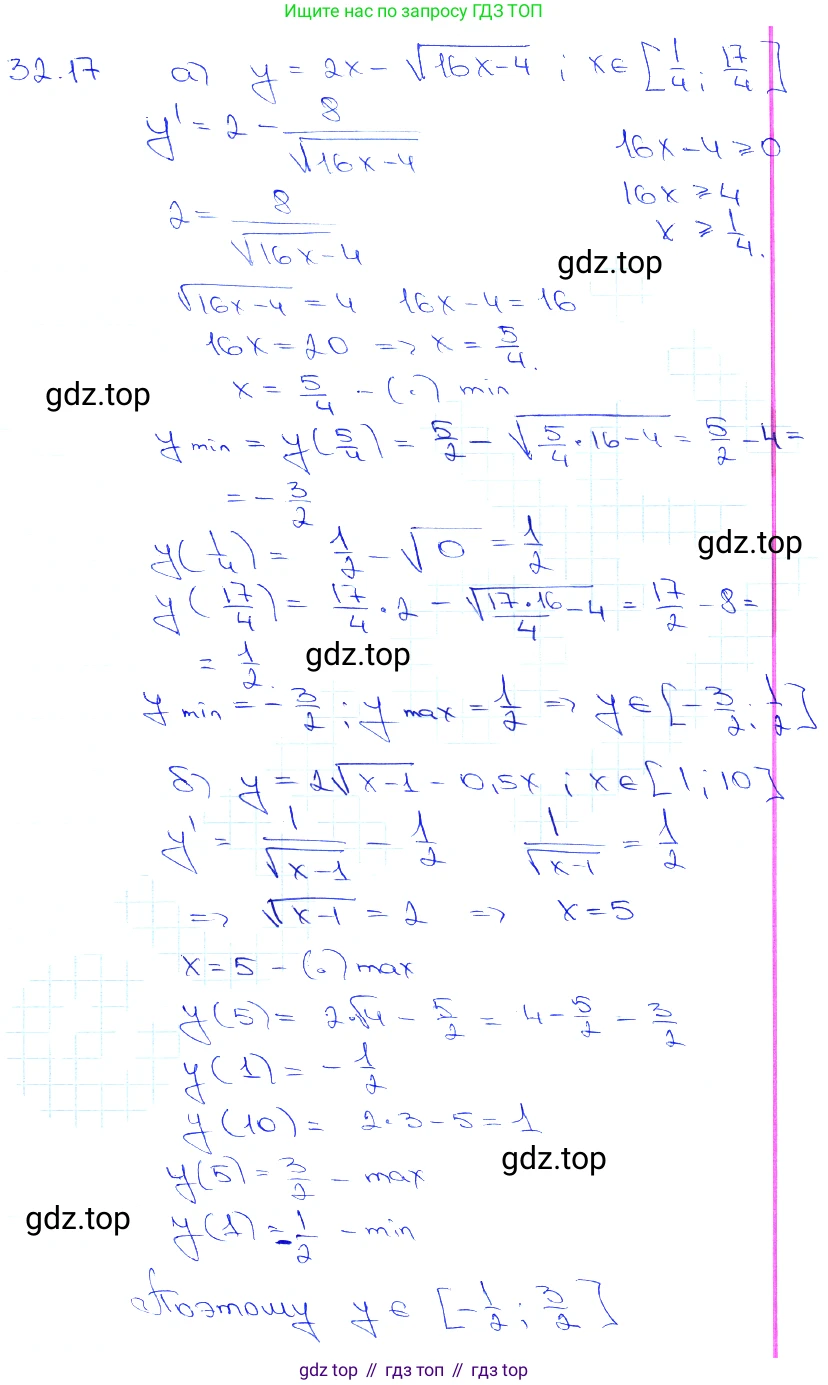 Ищите по запросу ГДЗ ТОП
32.17 а) y = 2x - √(16x-4) ; x ∈ [1/4 ; 17/4]
y' = 2 - 8/√(16x-4)
16x-4 ≥ 0
2 = 8/√(16x-4)
16x ≥ 4
x ≥ 1/4.
gdz.top
√(16x-4) = 4 16x-4 = 16
16x = 20 => x = 5/4.
gdz.top
x = 5/4 - (.) min
y min = y(5/4) = 5/2 - √(5/4·16-4) = 5/2 - 4 =
= - 3/2
y(1/4) = 1/2 - √0 = 1/2
gdz.top
y(17/4) = 17/4 · 2 - √(17·16/4 - 4) = 17/2 - 8 =
= 1/2.
gdz.top
y min = - 3/2 ; y max = 1/2 => y ∈ [-3/2 ; 1/2]
б) y = 2√(x-1) - 0,5x ; x ∈ [1 ; 10]
y' = 1/√(x-1) - 1/2 1/√(x-1) = 1/2
=> √(x-1) = 2 => x = 5
x = 5 - (.) max
y(5) = 2·√4 - 5/2 = 4 - 5/2 - 3/2
y(1) = - 1/2
y(10) = 2·3 - 5 = 1
gdz.top
y(5) = 3/2 - max
gdz.top
y(1) = -1/2 - min
Поэтому y ∈ [-1/2 ; 3/2]
gdz top // гдз топ // гдз top